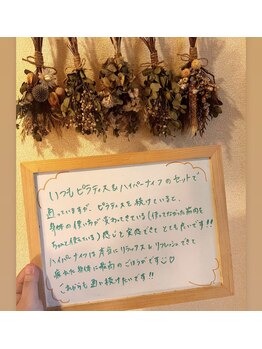 いつもピラティス&ハイパーナイフのセットで
通っていますが、ピラティスを続けていると、
身体の使い方が変わってきている(使ってなかった筋肉を
ちゃんと使えている)感じを実感できて とても良いです!!
ハイパーナイフは本当にリラックス&リフレッシュできて
疲れた身体に最高のごほうびです
これからも通い続けたいです!!